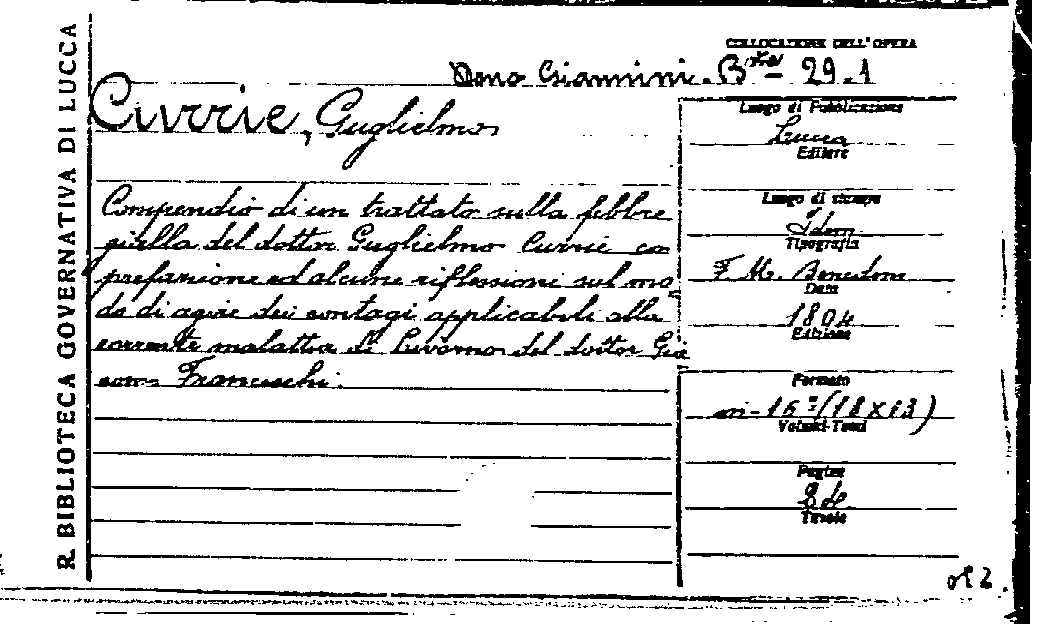 R. BIBLIOTECA GOVERNATIVA DI LUCCA
COLLOCAZIONE DELL'OPERA
Dono Giannini. B.ta 29.1
Currie, Guglielmo
Compendio di un trattato sulla febbre
gialla del dottor Guglielmo Currie con
prefazione ed alcune riflessioni sul mo
do di agire dei contagi applicabili alla
corrente malattia di Livorno del dottor Gia
como Franceschi.
Luogo di Pubblicazione
Lucca
Editore
Luogo di stampa
Idem
Tipografia
F. M. Benedini
Data
1804
Edizione
Formato
in-16º (18x13)
Volumi-Tomi
Pagine
84
Tavole